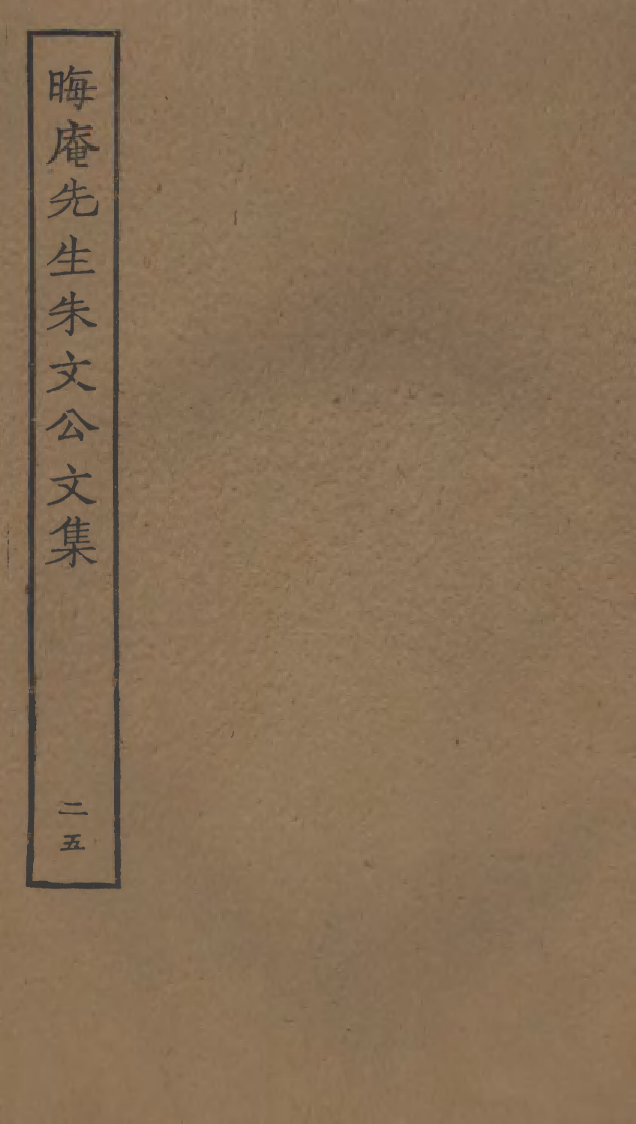 晦庵先生朱文公文集
二五